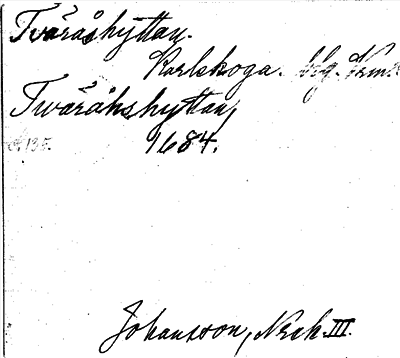 Tväråshyttan.
Karlskoga. bfg. Verml.
Twäråhshyttan,
1684.
Johansson, Noch. III.